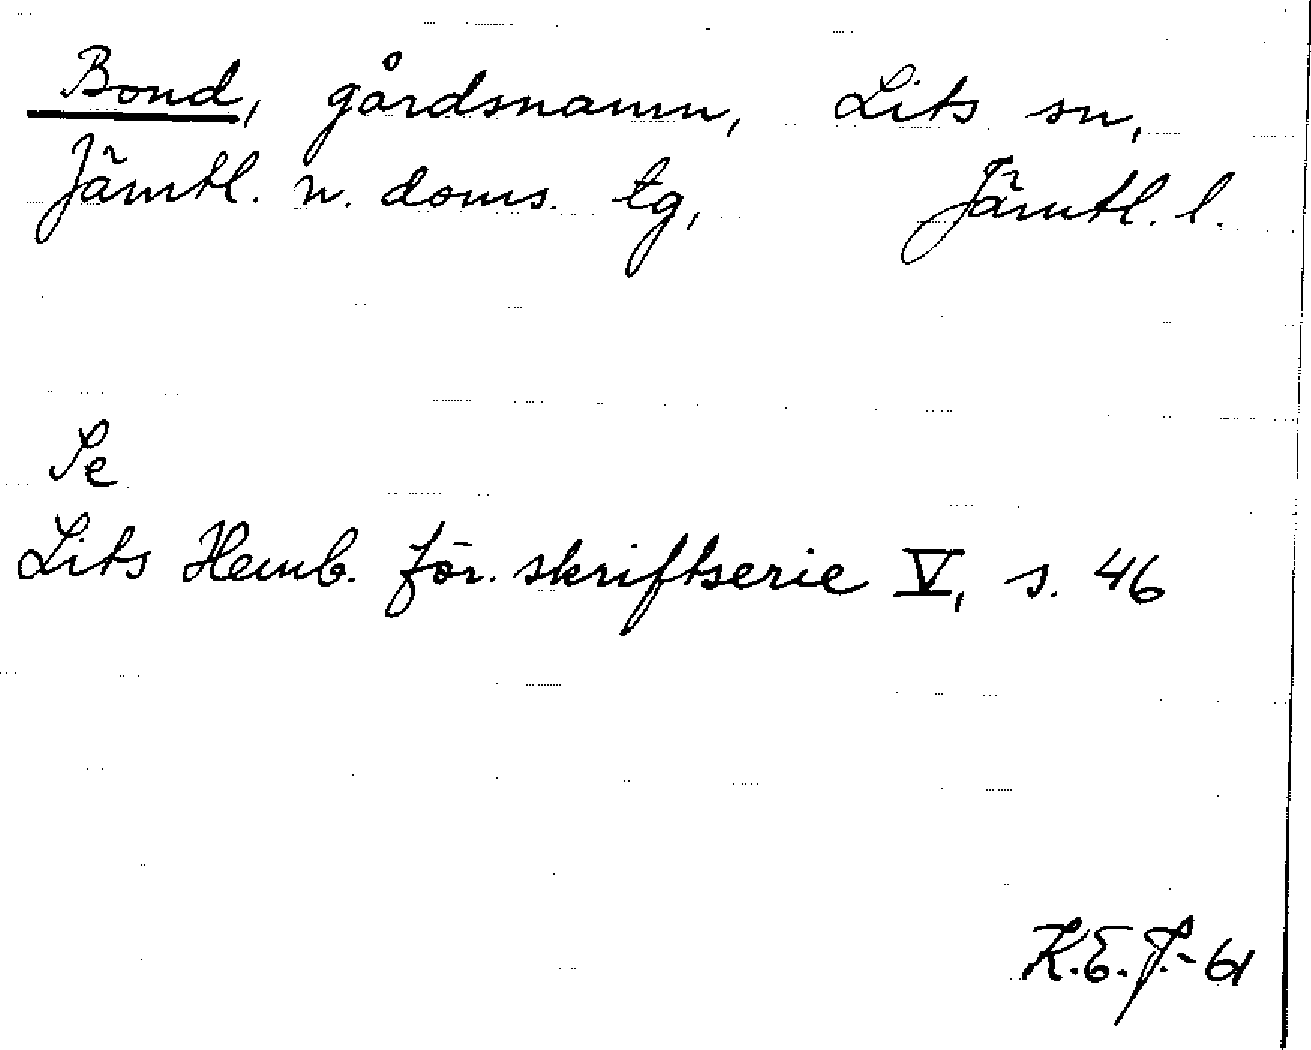 Bond, gårdsnamn, Lits sn,
Jämtl. n. doms. tg, Jämtl. l.
Se
Lits Hemb. för. skriftserie V, s. 46
K.E.J.-61